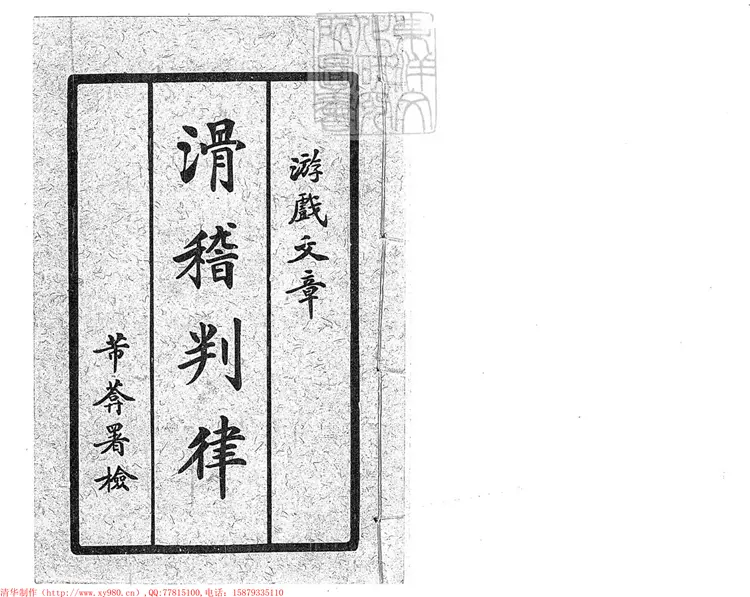 游戲文章
滑稽判律
署檢
清华制作（http://www.xy980.cn）,QQ:77815100,电话：15879335110